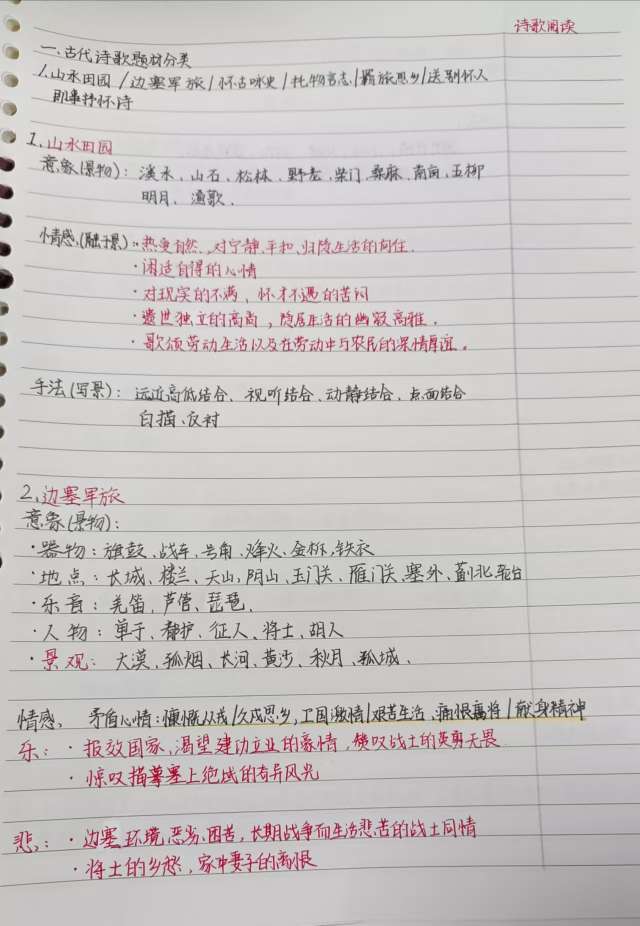 诗歌阅读
一.古代诗歌题材分类
1.山水田园/边塞军旅/怀古咏史/托物言志/羁旅思乡/送别怀人
即事抒怀诗
1.山水田园
意象(景物): 溪水、山石、松林、野老、柴门、桑麻、南亩、五柳
明月、渔歌、
情感(融于景): ·热爱自然、对宁静、平和、归隐生活的向往.
·闲适自得的心情
·对现实的不满, 怀才不遇的苦闷
·遗世独立的高尚, 隐居生活的幽寂高雅。
·歌颂劳动生活以及在劳动中与农民的深情厚谊。
手法(写景): 远近高低结合、视听结合、动静结合、点面结合
白描、反衬
2.边塞军旅
意象(景物):
·器物: 旗鼓、战车、号角、烽火、金柝、铁衣
·地点: 长城、楼兰、天山、阴山、玉门关、雁门关、塞外、蓟北、轮台
·乐音: 羌笛、芦管、琵琶、
·人物: 单于、都护、征人、将士、胡人
·景观: 大漠、孤烟、长河、黄沙、秋月、孤城、
情感、 矛盾心情: 慷慨从戎/久戍思乡, 卫国激情/艰苦生活、痛恨庸将/献身精神
乐: ·报效国家, 渴望建功立业的豪情, 赞叹战士的英勇无畏
·惊叹描摹塞上绝域的奇异风光
悲: ·边塞环境恶劣、困苦, 长期战争而生活悲苦的战士同情
·将士的乡愁, 家中妻子的离恨